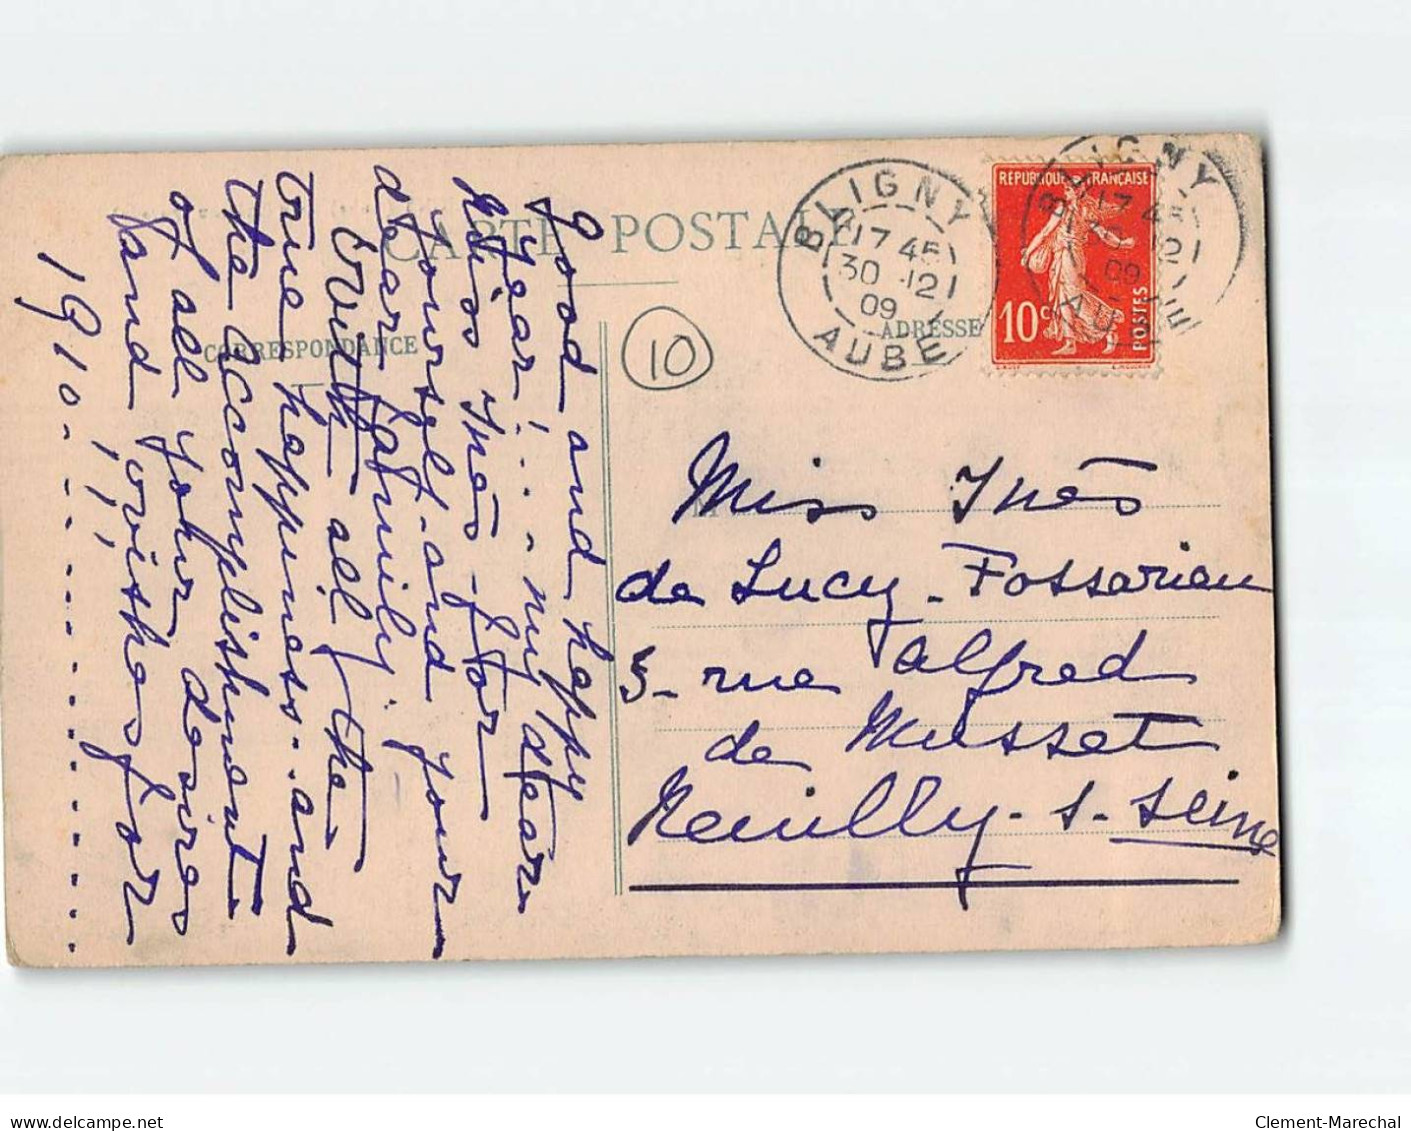 CARTE POSTALE
CORRESPONDANCE
ADRESSE
10
BLIGNY
17 45
30 - 12
09
AUBE
REPUBLIQUE FRANÇAISE
10 c
POSTES
BLIGNY
17 45
30 12
09
AUBE
Good and happy
year! . . . my dear
Miss Inès - for
yourself - and your
dear family.
With all the
true happiness - and
the accomplishment
of all your desires
and wishes for
1910. - - - - - - - -
Miss Inès
de Lucy - Fossarieu
5 - rue Alfred
de Musset
Neuilly - s - Seine
delcampe.net
Clement-Marechal